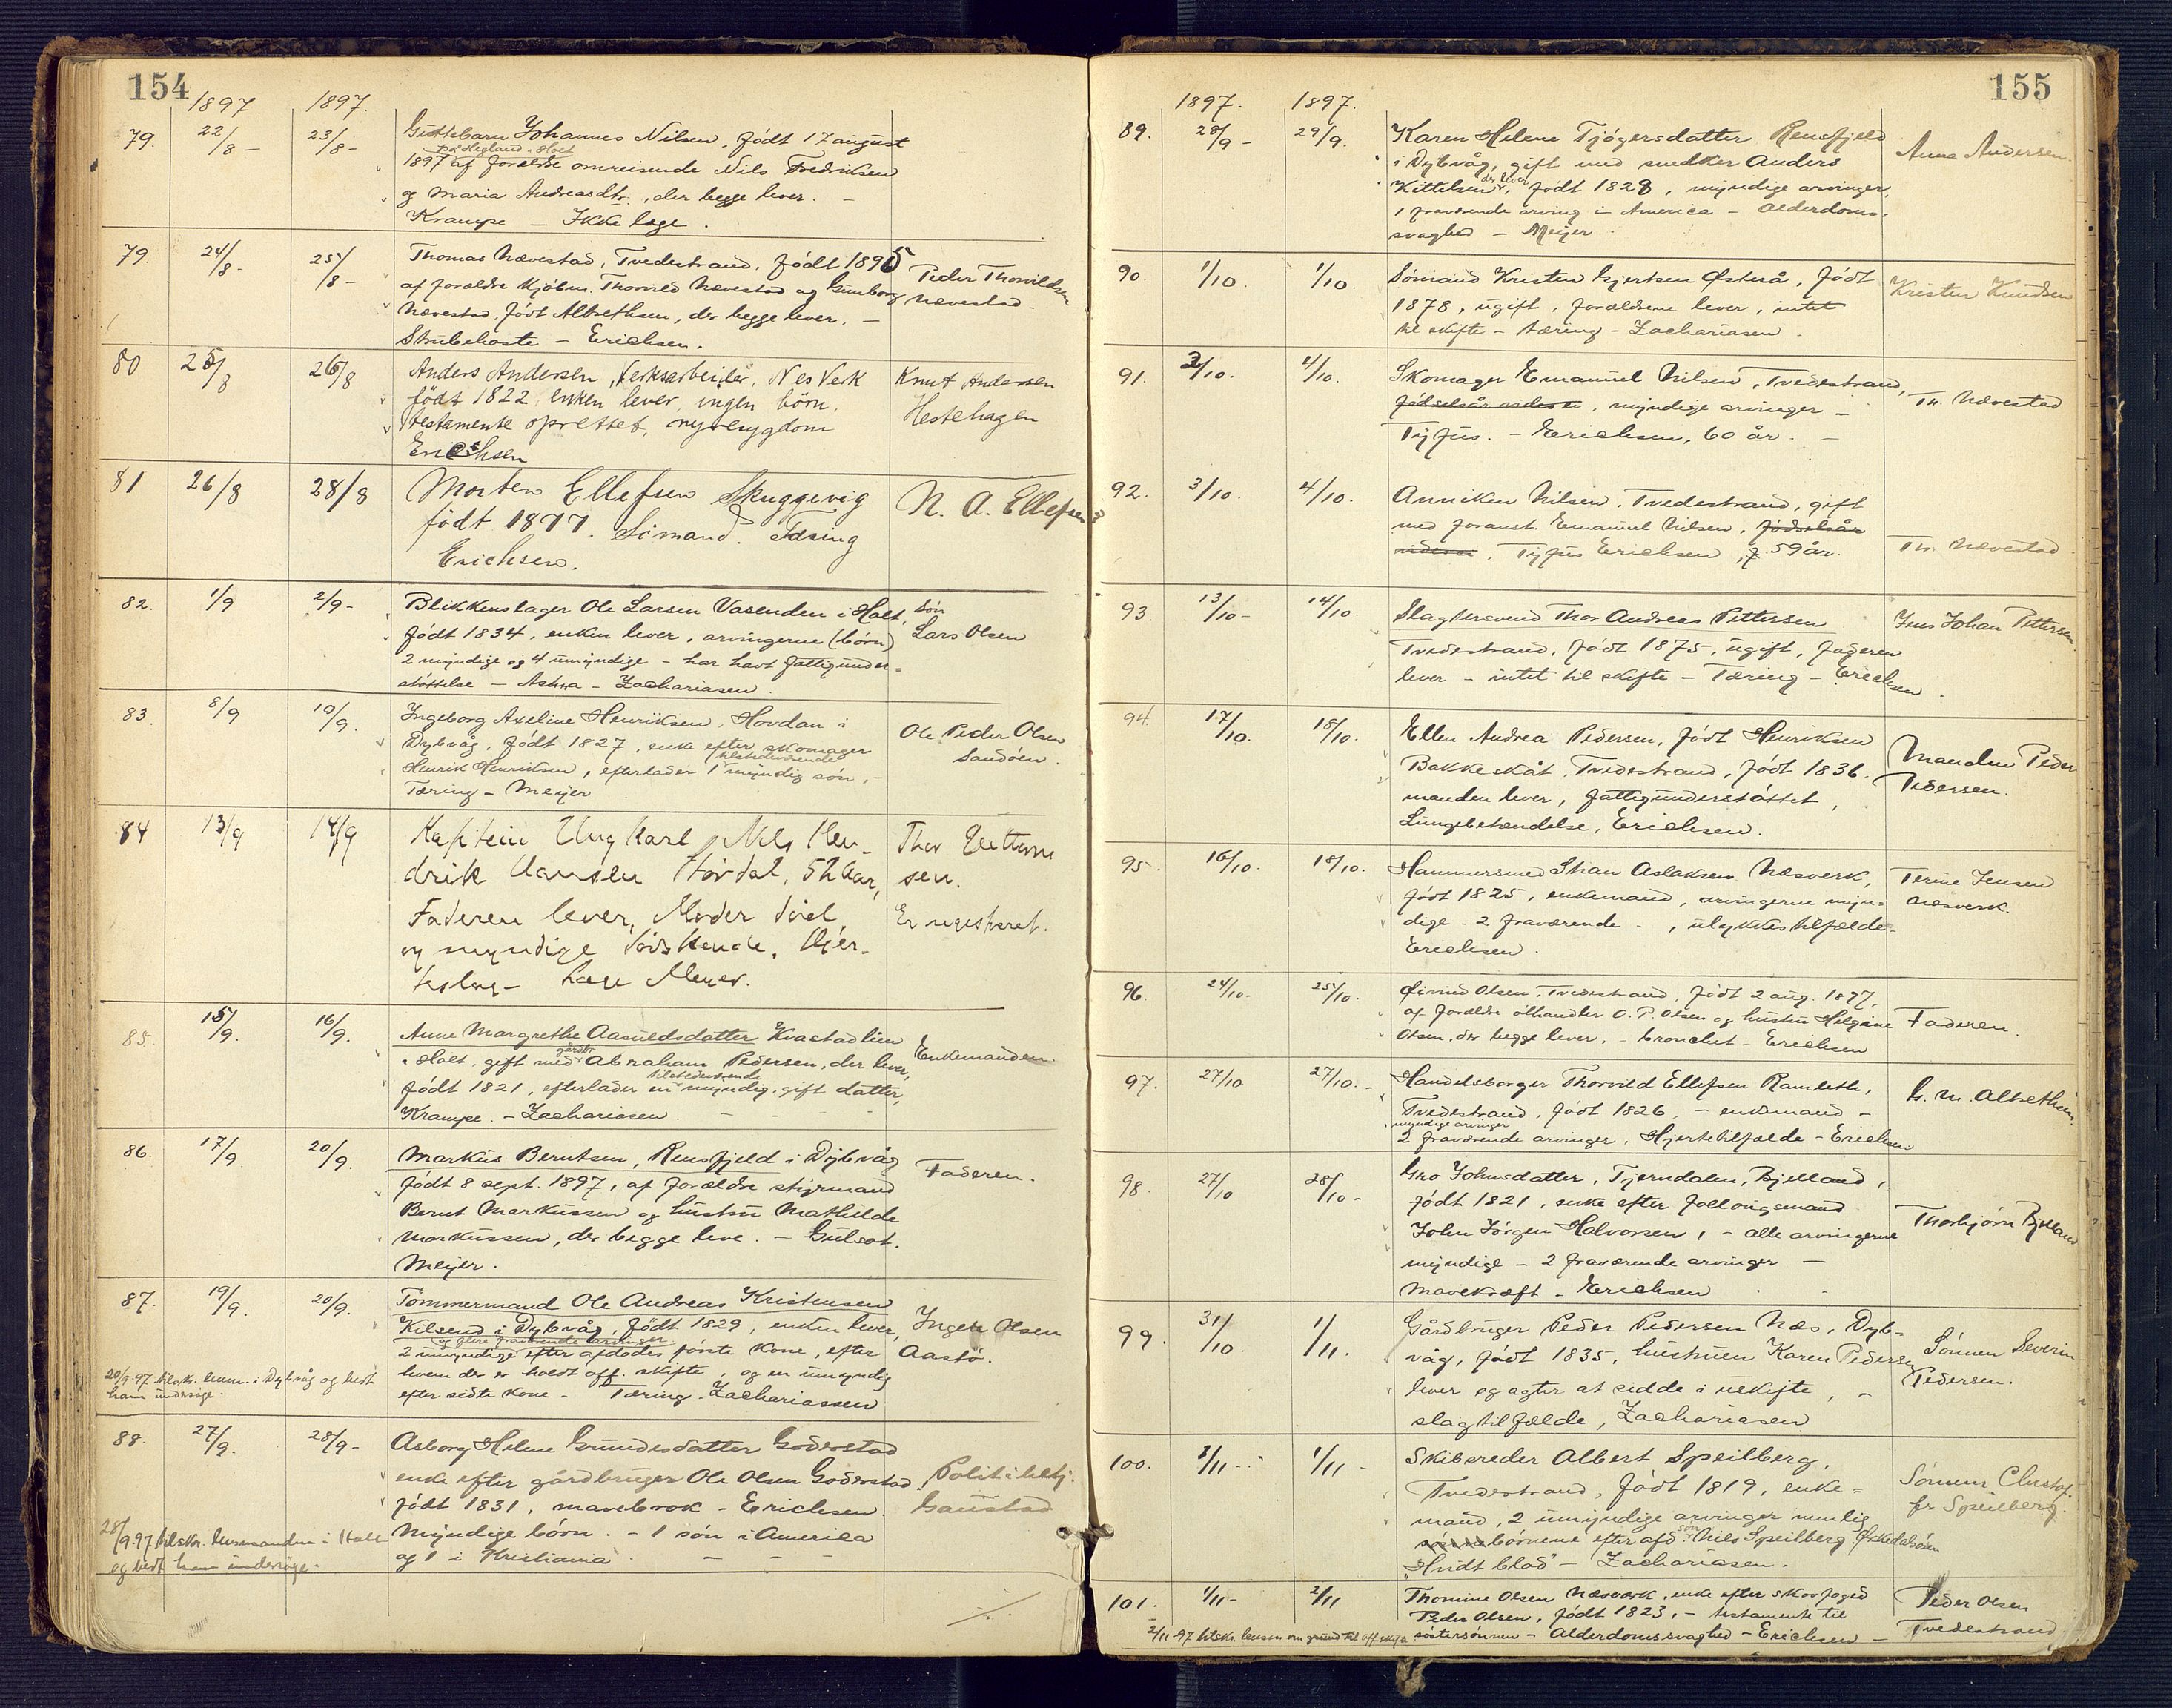 154
1897. 1897.
79. 22/8 - 23/8 - Guttebarn Johannes Nilsen, født 17 august
på Hegland i Holt
1897 af forældre omreisende Nils Fredriksen
og Maria Andreasdtr., der begge lever. -
Krampe - Ikke læge.
79. 24/8 - 25/8 - Thomas Nævestad, Tvedestrand, født 1895 Peder Thorvildsen
af forældre kjøbm. Thorvild Nævestad og Gunborg Nævestad
Nævestad, født Albrethsen, der begge lever. -
Strubehoste - Erichsen.
80 25/8 26/8 Anders Andersen, Verksarbeider, Nes Verk Knut Andersen
født 1822, enken lever, ingen børn, Hestehagen
testamente oprettet, nyresygdom
Erichsen
81 26/8 28/8 Morten Ellefsen Skuggevig N. A. Ellefsen
født 1877. Sømand. Tæring
Erichsen.
82. 1/9 2/9 - Blikkenslager Ole Larsen Vasenden i Holt, søn
født 1834, enken lever, arvingerne (børn) Lars Olsen
2 myndige og 4 umyndige - har havt fattigunder-
støttelse - Astma - Zachariasen.
83. 8/9 10/9. Ingeborg Axeline Henriksen, Hovdan i Ole Peder Olsen
Dybvåg, født 1827, enke efter skomager Sandøen.
tilstedeværende
Henrik Henriksen, efterlader 1 myndig søn, -
Tæring - Meyer
84 13/9 14/9 Kaptein Ungkarl Nils Hen- Thor
drik Hansen 52 Aar, sen.
Faderen lever, Moder død Er registreret.
og myndige Södskende. Hjer-
teslag - Læge Meyer.
85. 15/9. 16/9. Anne Margrethe Aasuldsdatter Kvastadlien Enkemanden.
gårdbr.
i Holt, gift med Abraham Pedersen, der lever,
tilstedeværende
født 1821, efterlader en myndig, gift datter,
Krampe. - Zachariasen. - - -
86. 17/9 20/9. Markus Berntsen, Rensfjeld i Dybvåg Faderen.
født 8 sept. 1897, af forældre styrmand
Bernt Markussen og hustru Mathilde
Markussen, der begge leve. - Gulsot.
Meyer.
87. 19/9. 20/9. Tømmermand Ole Andreas Kristensen Inger Olsen
Kilsund i Dybvåg, født 1829, enken lever, Aastø.
og flere fraværende arvinger
2 umyndige efter afdødes første kone, efter
hvem der er holdt off. skifte, og en umyndig
efter sidste kone - Tæring - Zachariassen
20/9.97 tilskr. lensm. i Dybvåg og bedt
ham undersøge.
88. 27/9. 28/9 - Asborg Helene Gundersdatter Goderstad Politibetj.
enke efter gårdbruger Ole Olsen Goderstad, Gaustad
født 1831, mavebrok - Erichsen
Myndige børn. - 1 søn i America
og 1 i Kristiania. - - -
28/9.97 tilskr. lensmanden i Holt
og bedt ham undersøge.
155
1897. 1897.
89. 28/9 - 29/9. Karen Helene Tjøgersdatter Rensfjeld Anna Andersen.
i Dybvåg, gift med snedker Anders
der lever
Kittelsen, født 1828, myndige arvinger,
1 fraværende arving i America - Alderdoms-
svaghed - Meyer.
90. 1/10. 1/10. Sømand Kristen Gjertsen Østerå, født Kristen Knudsen
1878, ugift, forældrene lever, intet
til skifte - tæring - Zachariasen.
91. 3/10. 4/10. Skomager Emanuel Nilsen, Tvedestrand, Th. Nævestad
fødselsår vides ei, myndige arvinger -
Tyfus. - Erichsen, 60 år. -
92. 3/10. 4/10. Anniken Nilsen, Tvedestrand, gift
med foranst. Emanuel Nilsen, fødselsår
vides ei, Tyfus Erichsen, 59 år. Th. Nævestad
93 13/10 - 14/10. Slagtersvend Thor Andreas Pettersen Jens Johan Pettersen
Tvedestrand, født 1875, ugift, faderen
lever - intet til skifte - Tæring - Erichsen.
94. 17/10. 18/10. Ellen Andrea Pedersen, født Henriksen Manden Peder
Bakkeskåt, Tvedestrand, født 1836, Pedersen.
manden lever, fattigunderstøttet,
Lungebetændelse, Erichsen.
95. 16/10. 18/10. Hammersmed Aslaksen Næsverk, Terine Jensen
født 1825, enkemand, arvingerne myn- Næsverk.
dige - 2 fraværende - , ulykkestilfælde -
Erichsen.
96. 24/10. 25/10. Øivind Olsen, Tvedestrand, født 2 aug. 1897,
af forældre ølhandler O. P. Olsen og hustru Helgine Faderen.
Olsen, der begge lever. - bronchit - Erichsen
97. 27/10 27/10. - Handelsborger Thorvild Ellefsen Ramleth,
Tvedestrand, født 1826, - enkemand -
myndige arvinger
2 fraværende arvinger. Hjertetilfælde - Erichsen
98. 27/10 28/10 - Gro Johnsdatter, Tjerndalen, Bjelland, Thorbjørn Bjelland
født 1821, enke efter follougsmand
John Jørgen Halvorsen, - alle arvingerne
myndige - 2 fraværende arvinger -
Mavekræft - Erichsen.
99. 31/10 1/11. Gårdbruger Peder Pedersen Næs, Dyb- Sønnen Severin
våg, født 1835, hustruen Karen Pedersen Pedersen.
lever og agter at sidde i uskifte, -
slagtilfælde, Zachariasen
100. 1/11 - 1/11 - Skibsreder Albert Speilberg, Sønnen Christof-
Tvedestrand, født 1819, enke- fer Speilberg.
mand, 2 umyndige arvinger nemlig
børnene efter afd. søn Nils Speilberg
"Hvidt blod" - Zachariasen.
101. 1/11 - 2/11 Thomine Olsen Næsverk, enke efter skovfoged Peder Olsen
Peder Olsen, født 1823, - testamente til Tvedestrand
søstersønnen - Alderdomssvaghed - Erichsen -
2/11 97 tilskr. lensm om grund til off skifte